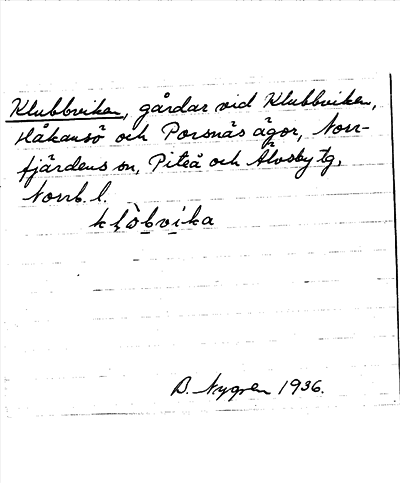 Klubbviken, gårdar vid Klubbviken,
Håkansö och Porsnäs ägor, Norr-
fjärdens sn, Piteå och Älvsby tg,
Norrb. l.
klòbvika
B. Nygren 1936.